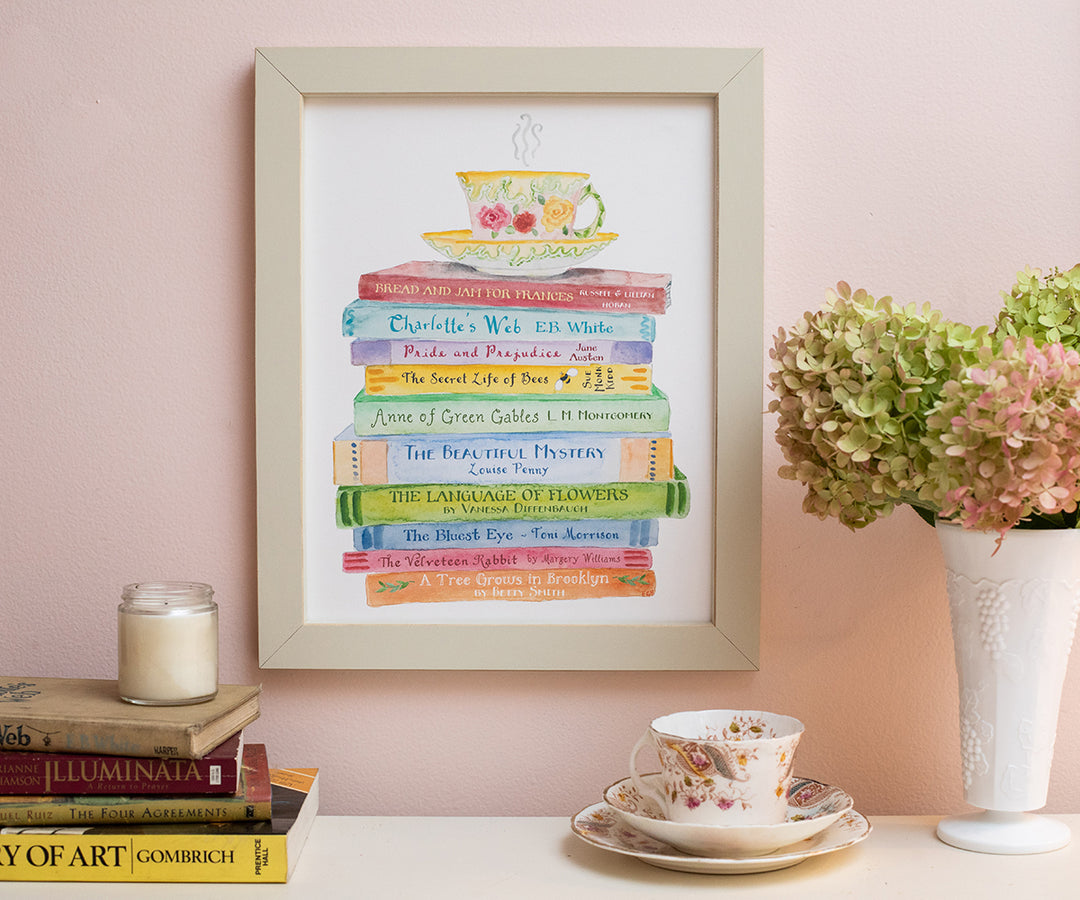 BREAD AND JAM FOR FRANCES RUSSELL & LILLIAN HOBAN
Charlotte's Web E.B. White
Pride and Prejudice Jane Austen
The Secret Life of Bees Sue Monk Kidd
Anne of Green Gables L. M. Montgomery
The Beautiful Mystery
Louise Penny
THE LANGUAGE OF FLOWERS
BY VANESSA DIFFENBAUGH
The Bluest Eye ~ Toni Morrison
The Velveteen Rabbit by Margery Williams
A Tree Grows in Brooklyn
BY BETTY SMITH
Web E.B. White HARPER
RIANNE
IAMSON ILLUMINATA
A Return to Prayer
uel Ruiz THE FOUR AGREEMENTS
RY OF ART GOMBRICH PRENTICE HALL